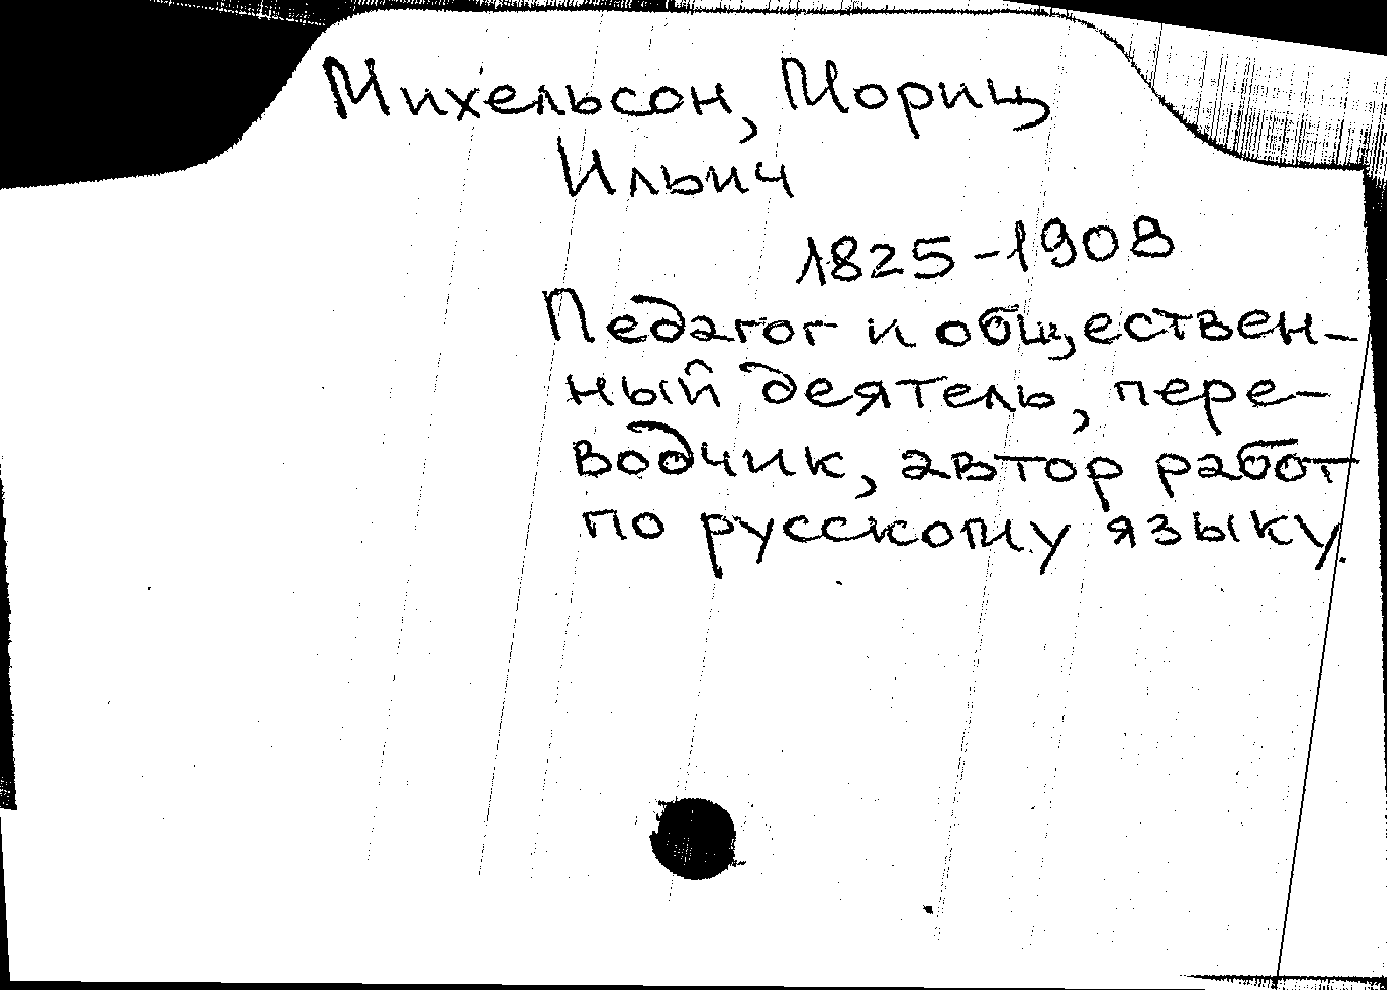 Михельсон, Мориц
Ильич
1825-1908
Педагог и обществен-
ный деятель, пере-
водчик, автор работ
по русскому языку.